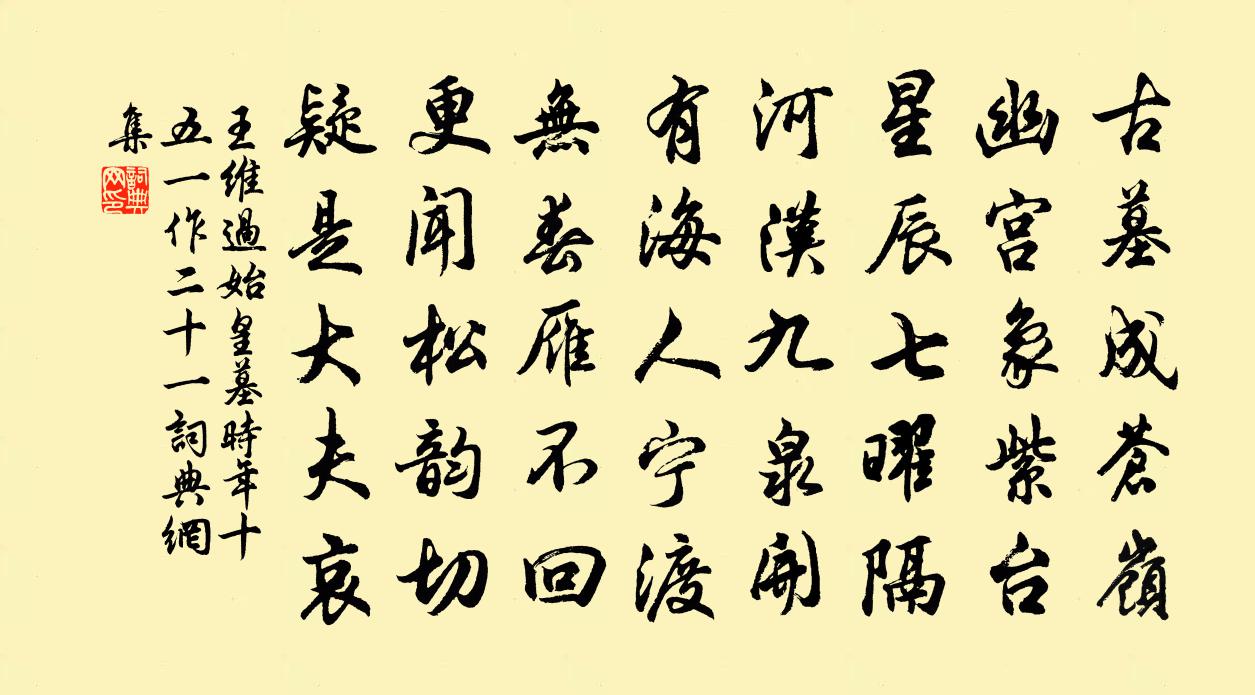 古墓成蒼嶺
幽宫象紫台
星辰七曜隔
河漢九泉開
有海人宁渡
無春雁不回
更聞松韵切
疑是大夫哀
王維過始皇墓時年十
五一作二十一詞典網
集
詞典网印